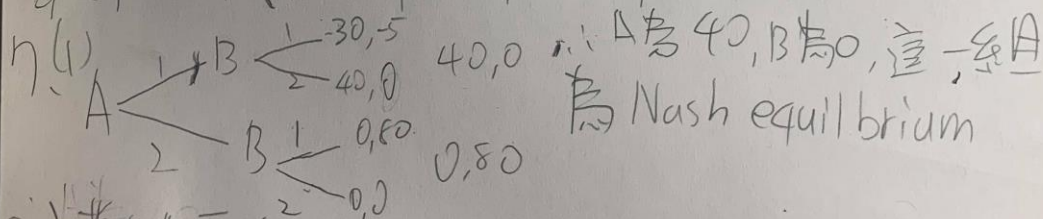 7.(1)
A
1 B 1 -30,-5
2 40,0
40,0 ∴A為40,B為0,這一組
為Nash equilbrium
2 B 1 0,80
2 0,0
0,80